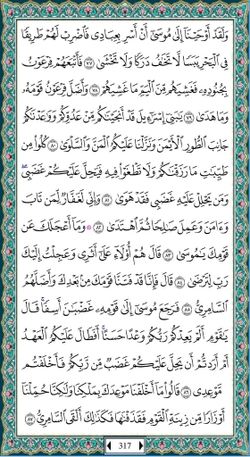 وَلَقَدْ أَوْحَيْنَا إِلَىٰ مُوسَىٰ أَنْ أَسْرِ بِعِبَادِي فَاضْرِبْ لَهُمْ طَرِيقًا
فِي الْبَحْرِ يَبَسًا لَا تَخَافُ دَرَكًا وَلَا تَخْشَىٰ ﴿٧٧﴾ فَأَتْبَعَهُمْ فِرْعَوْنُ
بِجُنُودِهِ فَغَشِيَهُمْ مِنَ الْيَمِّ مَا غَشِيَهُمْ ﴿٧٨﴾ وَأَضَلَّ فِرْعَوْنُ قَوْمَهُ
وَمَا هَدَىٰ ﴿٧٩﴾ يَا بَنِي إِسْرَائِيلَ قَدْ أَنْجَيْنَاكُمْ مِنْ عَدُوِّكُمْ وَوَاعَدْنَاكُمْ
جَانِبَ الطُّورِ الْأَيْمَنَ وَنَزَّلْنَا عَلَيْكُمُ الْمَنَّ وَالسَّلْوَىٰ ﴿٨٠﴾ كُلُوا مِنْ
طَيِّبَاتِ مَا رَزَقْنَاكُمْ وَلَا تَطْغَوْا فِيهِ فَيَحِلَّ عَلَيْكُمْ غَضَبِي
وَمَنْ يَحْلِلْ عَلَيْهِ غَضَبِي فَقَدْ هَوَىٰ ﴿٨١﴾ وَإِنِّي لَغَفَّارٌ لِمَنْ تَابَ
وَآمَنَ وَعَمِلَ صَالِحًا ثُمَّ اهْتَدَىٰ ﴿٨٢﴾ وَمَا أَعْجَلَكَ عَنْ
قَوْمِكَ يَا مُوسَىٰ ﴿٨٣﴾ قَالَ هُمْ أُولَاءِ عَلَىٰ أَثَرِي وَعَجِلْتُ إِلَيْكَ
رَبِّ لِتَرْضَىٰ ﴿٨٤﴾ قَالَ فَإِنَّا قَدْ فَتَنَّا قَوْمَكَ مِنْ بَعْدِكَ وَأَضَلَّهُمُ
السَّامِرِيُّ ﴿٨٥﴾ فَرَجَعَ مُوسَىٰ إِلَىٰ قَوْمِهِ غَضْبَانَ أَسِفًا قَالَ
يَا قَوْمِ أَلَمْ يَعِدْكُمْ رَبُّكُمْ وَعْدًا حَسَنًا أَفَطَالَ عَلَيْكُمُ الْعَهْدُ
أَمْ أَرَدْتُمْ أَنْ يَحِلَّ عَلَيْكُمْ غَضَبٌ مِنْ رَبِّكُمْ فَأَخْلَفْتُمْ
مَوْعِدِي ﴿٨٦﴾ قَالُوا مَا أَخْلَفْنَا مَوْعِدَكَ بِمَلْكِنَا وَلَٰكِنَّا حُمِّلْنَا
أَوْزَارًا مِنْ زِينَةِ الْقَوْمِ فَقَذَفْنَاهَا فَكَذَٰلِكَ أَلْقَى السَّامِرِيُّ ﴿٨٧﴾
317